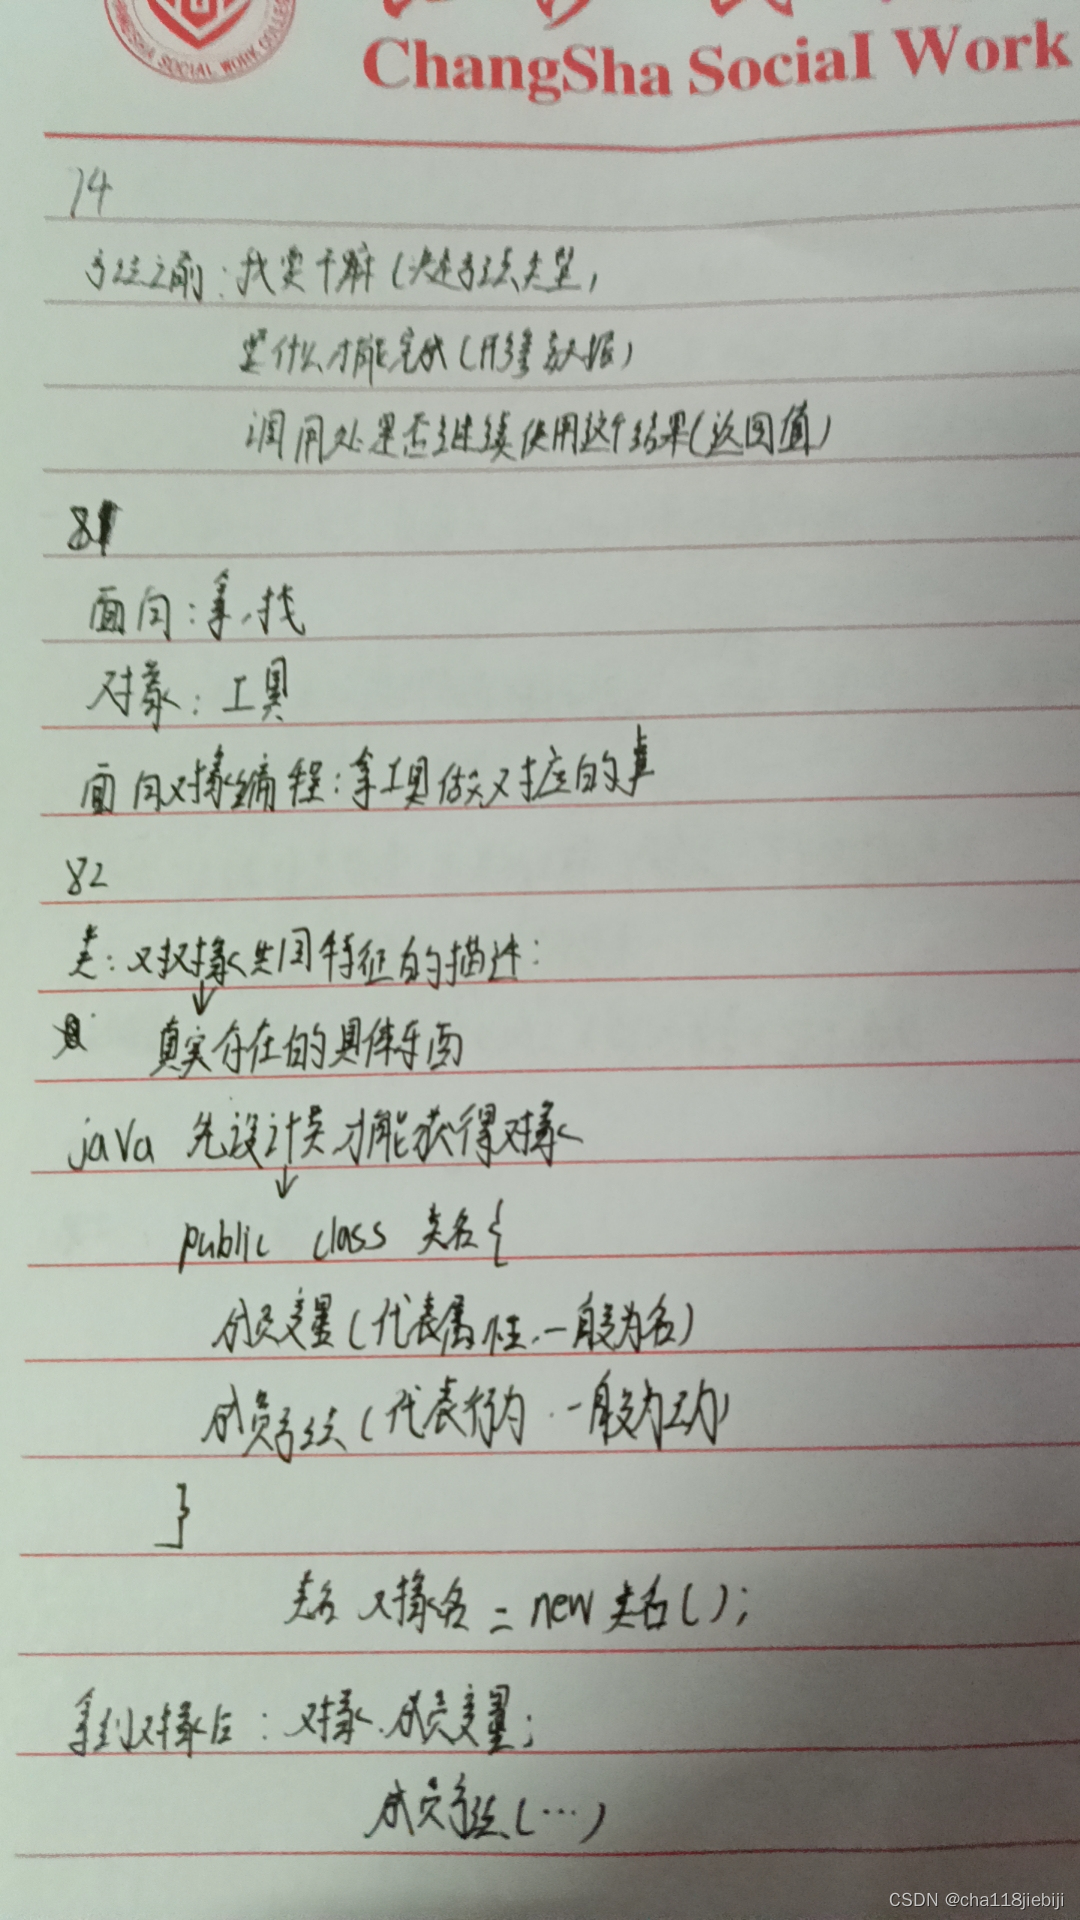 SOCIAL WORK
ChangSha Social Work
74
方法之前：我要干嘛（决定方法类型）
要什么才能完成（形参 数据）
调用处是否继续使用这个结果（返回值）
81
面向：拿，找
对象：工具
面向对象编程：拿工具做对应的事
82
类：对对象共同特征的描述：
↓
真实存在的具体东西
java 先设计类才能获得对象
↓
public class 类名{
成员变量（代表属性，一般为名）
成员方法（代表行为，一般为动）
}
类名 对象名 = new 类名();
拿到对象后：对象.成员变量;
成员方法(…)
CSDN @cha118jiebiji